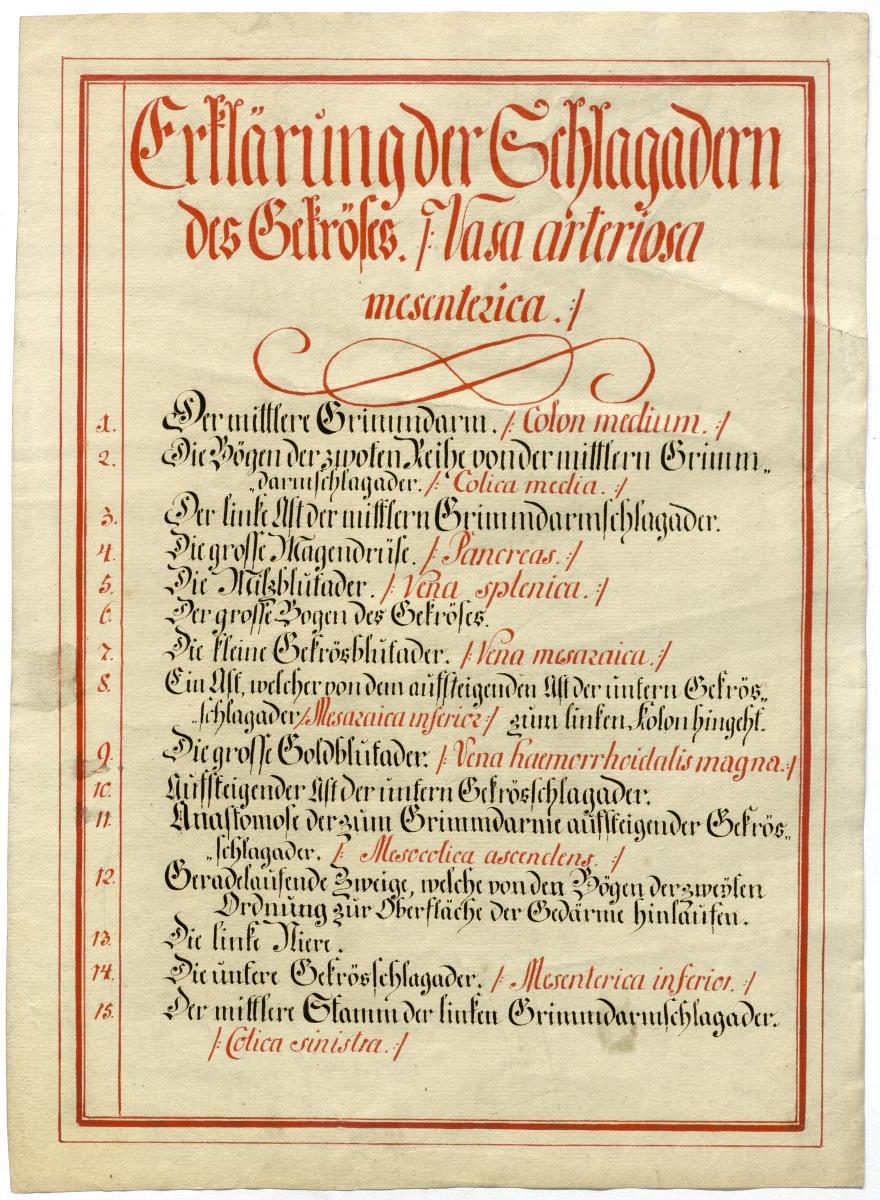 Erklärung der Schlagadern
des Gekröses. /: Vasa arteriosa
mesenterica. :/
1. Der mittlere Grimmdarm. /: Colon medium. :/
2. Die Bögen der zwoten Reihe von der mittlern Grimm„
„darmschlagader. /: Colica media. :/
3. Der linke Ast der mittlern Grimmdarmschlagader.
4. Die grosse Magendrüse. /: Pancreas. :/
5. Die Milzblutader. /: Vena splenica. :/
6. Der grosse Bogen des Gekröses.
7. Die kleine Gekrösblutader. /: Vena mesaraica. :/
8. Ein Ast, welcher von dem aufsteigenden Ast der untern Gekrös„
„schlagader /: Mesaraica inferior :/ zum linken Kolon hingeht.
9. Die grosse Goldblutader. /: Vena haemorrhoidalis magna. :/
10. Aufsteigender Ast der untern Gekrösschlagader.
11. Anastomose der zum Grimmdarme aufsteigender Gekrös„
„schlagader. /: Mesocolica ascendens. :/
12. Geradelaufende Zweige, welche von den Bögen der zweÿten
Ordnung zur Oberfläche der Gedärme hinlaufen.
13. Die linke Niere.
14. Die untere Gekrösschlagader. /: Mesenterica inferior. :/
15. Der mittlere Stamm der linken Grimmdarmschlagader.
/: Colica sinistra. :/